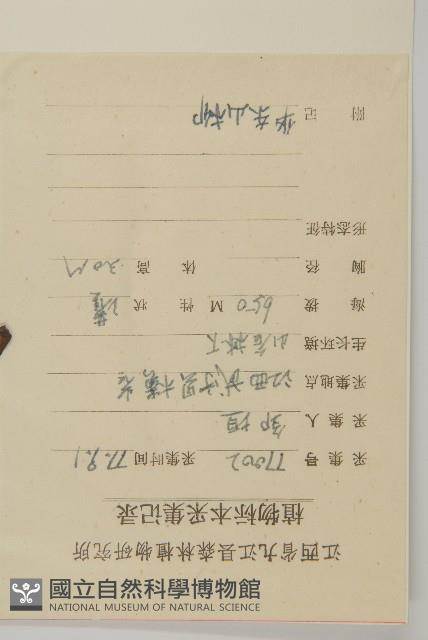 江西省九江县森林植物研究所
植物标本采集记录
采集号 77002 采集时间 77.9.1
采集人 邹垣
采集地点 江西武宁罗
生长环境 山谷林下
海拔 650 M 性状 灌
胸径 体高 3.0M
形态特征
附记 华东山柳
國立自然科學博物館
NATIONAL MUSEUM OF NATURAL SCIENCE